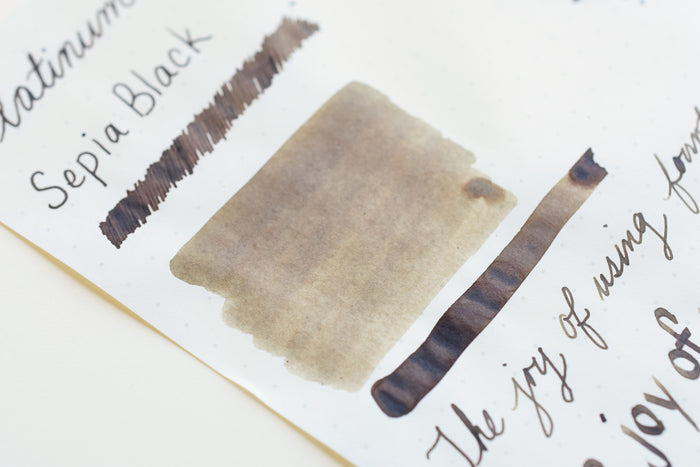 Platinum
Sepia Black
The joy of using foun
joy of